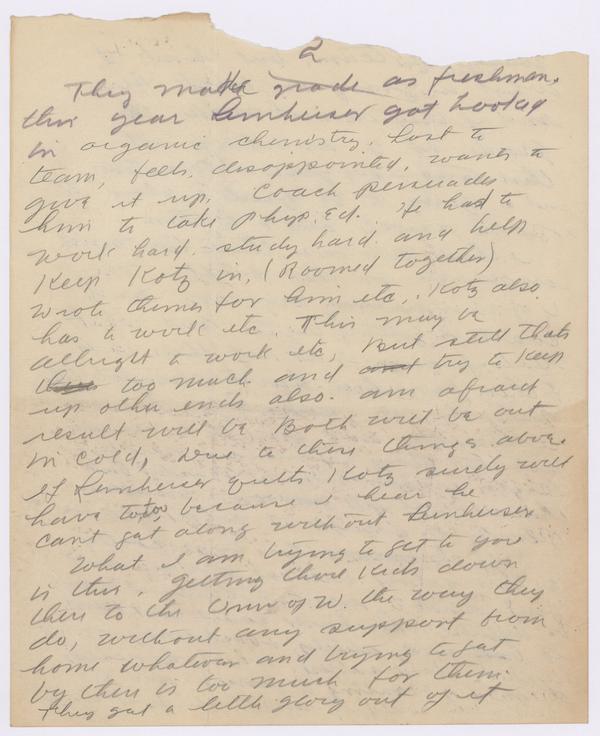 2
They make grade as freshman.
this year Lernheiser got hooked
in organic chemistry. Lost to
team, feels disappointed, wants to
give it up. Coach persuades
him to take Phys. Ed. He had to
work hard. study hard. and help
Keep Kotz in, (Roomed together)
wrote themes for him etc. Kotz also
has a work etc. This may be
allright a work etc, But still thats
too much. and and try to Keep
up other ends also. am afraid
result will be Both will be out
in cold, due to these things above.
If Lernheiser quits Kotz surely will
have to too, because I hear he
can't get along without Lernheiser
What I am trying to get to you
is this, getting those Kids down
there to the Univ of W. the way they
do, without any support from
home whatever and trying to get
by there is too much for them.
They get a little glory out of it